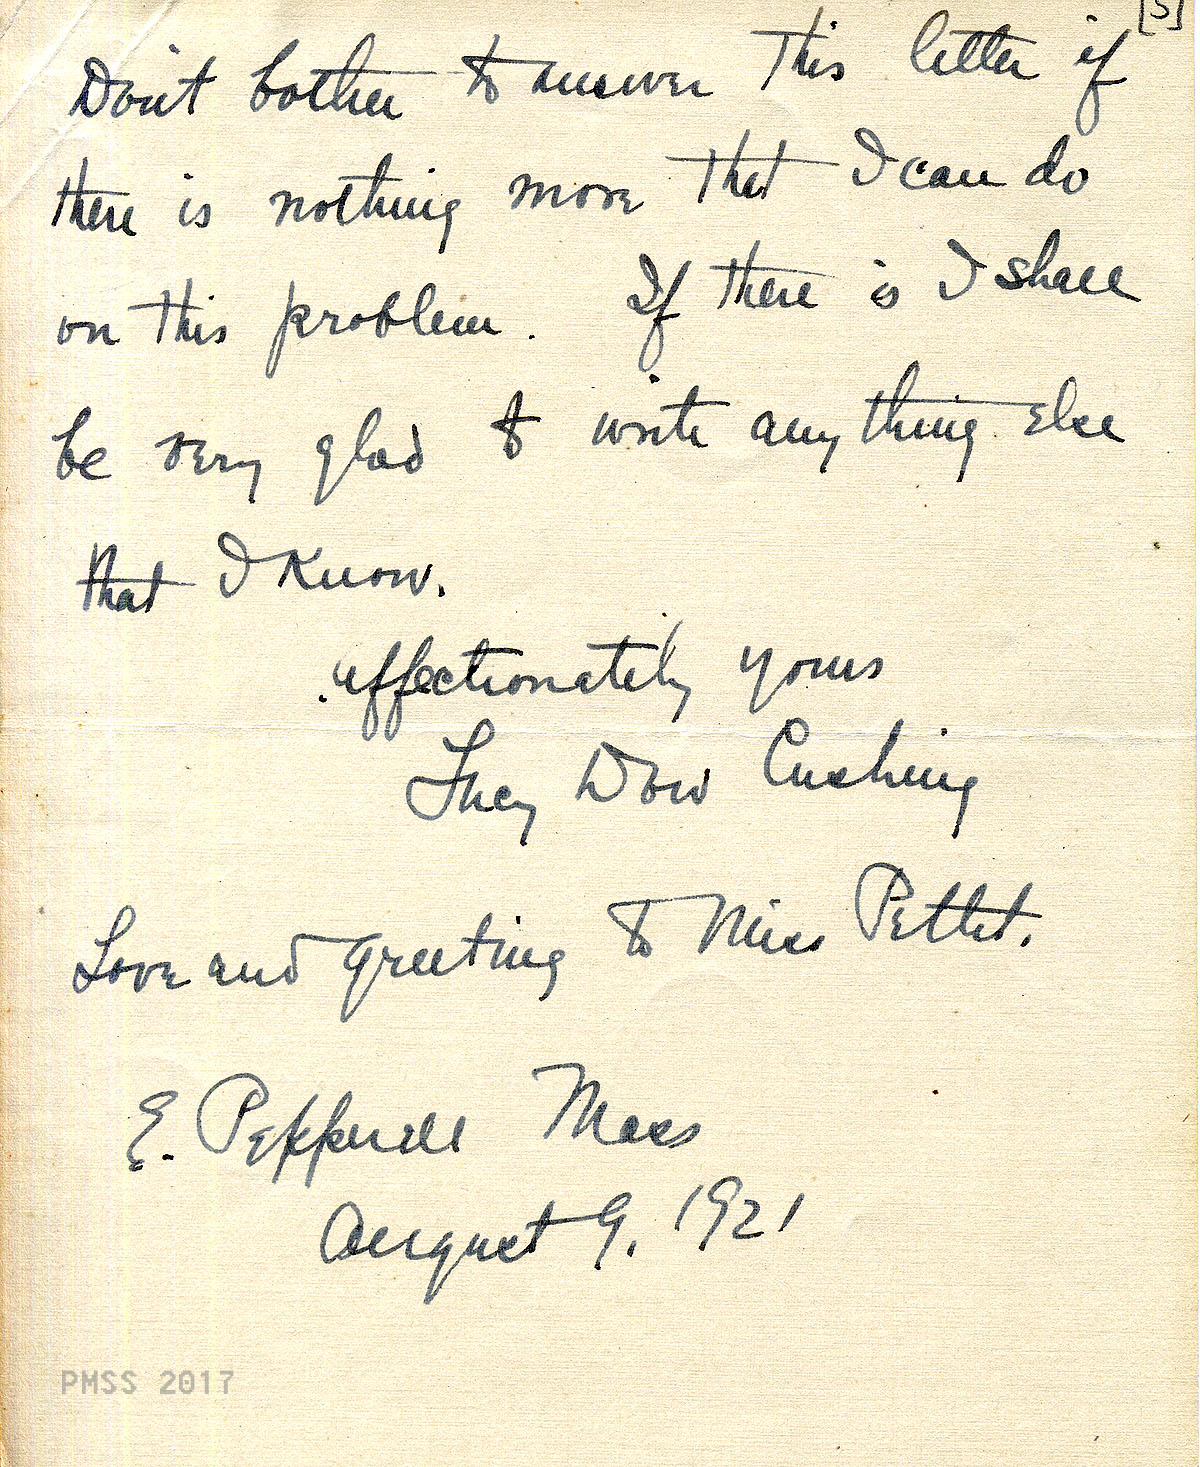 [5]
Don't bother to answer this letter if
there is nothing more that I can do
on this problem. If there is I shall
be very glad to write anything else
that I know.
affectionately yours
Lucy Dow Cushing
Love and greeting to Miss Pettit.
E. Pepperell Mass
August 9, 1921
PMSS 2017